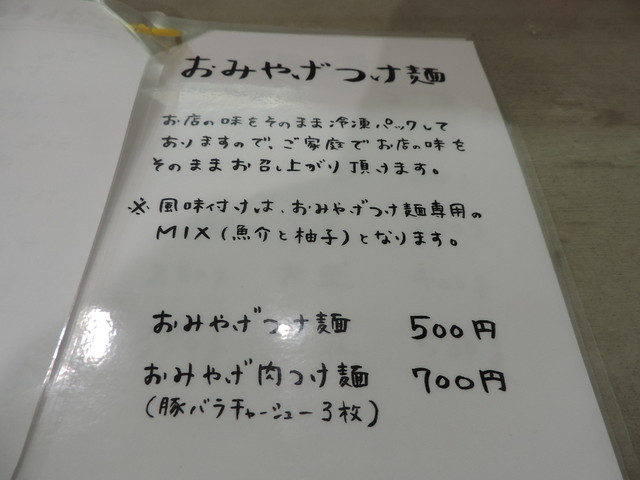 おみやげつけ麺
お店の味をそのまま冷凍パックして
おりますので、ご家庭でお店の味を
そのままお召し上がり頂けます。
※ 風味付けは、おみやげつけ麺専用の
MIX(魚介と柚子)となります。
おみやげつけ麺 500円
おみやげ肉つけ麺 700円
(豚バラチャーシュー3枚)